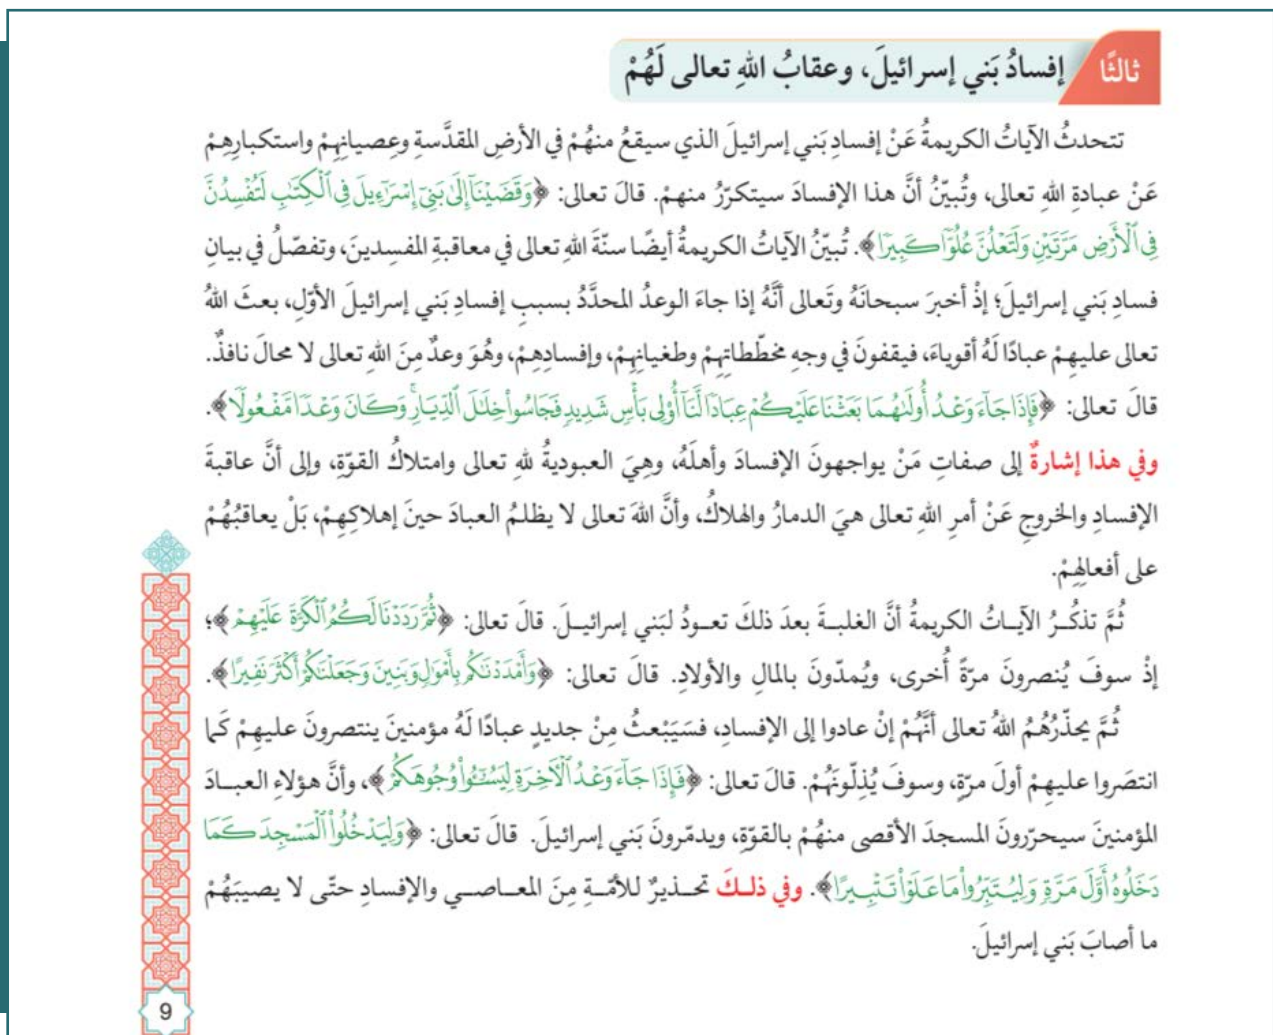 ثالثًا إفسادُ بَني إسرائيلَ، وعقابُ اللهِ تعالى لَهُمْ
تتحدثُ الآياتُ الكريمةُ عَنْ إفسادِ بَني إسرائيلَ الذي سيقعُ منهُمْ في الأرضِ المقدَّسةِ وعِصيانِهِمْ واستكبارِهِمْ
عَنْ عبادةِ اللهِ تعالى، وتُبيّنُ أنَّ هذا الإفسادَ سيتكرّرُ منهمْ. قالَ تعالى: ﴿وَقَضَيْنَآ إِلَىٰ بَنِيٓ إِسْرَٰٓءِيلَ فِي ٱلْكِتَٰبِ لَتُفْسِدُنَّ
فِي ٱلْأَرْضِ مَرَّتَيْنِ وَلَتَعْلُنَّ عُلُوًّا كَبِيرًا﴾. تُبيّنُ الآياتُ الكريمةُ أيضًا سنّةَ اللهِ تعالى في معاقبةِ المفسِدينَ، وتفصّلُ في بيانِ
فسادِ بَني إسرائيلَ؛ إذْ أخبرَ سبحانَهُ وتَعالى أنَّهُ إذا جاءَ الوعدُ المحدَّدُ بسببِ إفسادِ بَني إسرائيلَ الأوّلِ، بعثَ اللهُ
تعالى عليهِمْ عبادًا لَهُ أقوياءَ، فيقفونَ في وجهِ مخطّطاتِهِمْ وطغيانِهِمْ، وإفسادِهِمْ، وهُوَ وعدٌ مِنَ اللهِ تعالى لا محالَ نافذٌ.
قالَ تعالى: ﴿فَإِذَا جَآءَ وَعْدُ أُولَىٰهُمَا بَعَثْنَا عَلَيْكُمْ عِبَادًا لَّنَآ أُوْلِي بَأْسٍ شَدِيدٍ فَجَاسُواْ خِلَٰلَ ٱلدِّيَارِۚ وَكَانَ وَعْدًا مَّفْعُولًا﴾.
وفي هذا إشارةٌ إلى صفاتِ مَنْ يواجهونَ الإفسادَ وأهلَهُ، وهِيَ العبوديةُ للهِ تعالى وامتلاكُ القوّةِ، وإلى أنَّ عاقبةَ
الإفسادِ والخروجِ عَنْ أمرِ اللهِ تعالى هيَ الدمارُ والهلاكُ، وأنَّ اللهَ تعالى لا يظلمُ العبادَ حينَ إهلاكِهِمْ، بَلْ يعاقبُهُمْ
على أفعالِهِمْ.
ثُمَّ تذكُرُ الآيـاتُ الكريمةُ أنَّ الغلبـةَ بعدَ ذلكَ تعـودُ لبَني إسرائيـلَ. قالَ تعالى: ﴿ثُمَّ رَدَدْنَا لَكُمُ ٱلْكَرَّةَ عَلَيْهِمْ﴾؛
إذْ سوفَ يُنصرونَ مرّةً أُخرى، ويُمدّونَ بالمالِ والأولادِ. قالَ تعالى: ﴿وَأَمْدَدْنَٰكُم بِأَمْوَٰلٍ وَبَنِينَ وَجَعَلْنَٰكُمْ أَكْثَرَ نَفِيرًا﴾.
ثُمَّ يحذّرُهُمُ اللهُ تعالى أنَّهُمْ إنْ عادوا إلى الإفسادِ، فسَيَبْعثُ مِنْ جديدٍ عبادًا لَهُ مؤمنينَ ينتصرونَ عليهِمْ كَما
انتصَروا عليهِمْ أولَ مرّةٍ، وسوفَ يُذِلّونَهُمْ. قالَ تعالى: ﴿فَإِذَا جَآءَ وَعْدُ ٱلْأٓخِرَةِ لِيَسُـُٔواْ وُجُوهَكُمْ﴾، وأنَّ هؤلاءِ العبـادَ
المؤمنينَ سيحرّرونَ المسجدَ الأقصى منهُمْ بالقوّةِ، ويدمّرونَ بَني إسرائيلَ. قالَ تعالى: ﴿وَلِيَدْخُلُواْ ٱلْمَسْجِدَ كَمَا
دَخَلُوهُ أَوَّلَ مَرَّةٍ وَلِيُتَبِّرُواْ مَا عَلَوْاْ تَتْبِيرًا﴾. وفي ذلـكَ تحـذيرٌ للأمّـةِ مِنَ المعـاصـي والإفسادِ حتّى لا يصيبَهُمْ
ما أصابَ بَني إسرائيلَ.
9